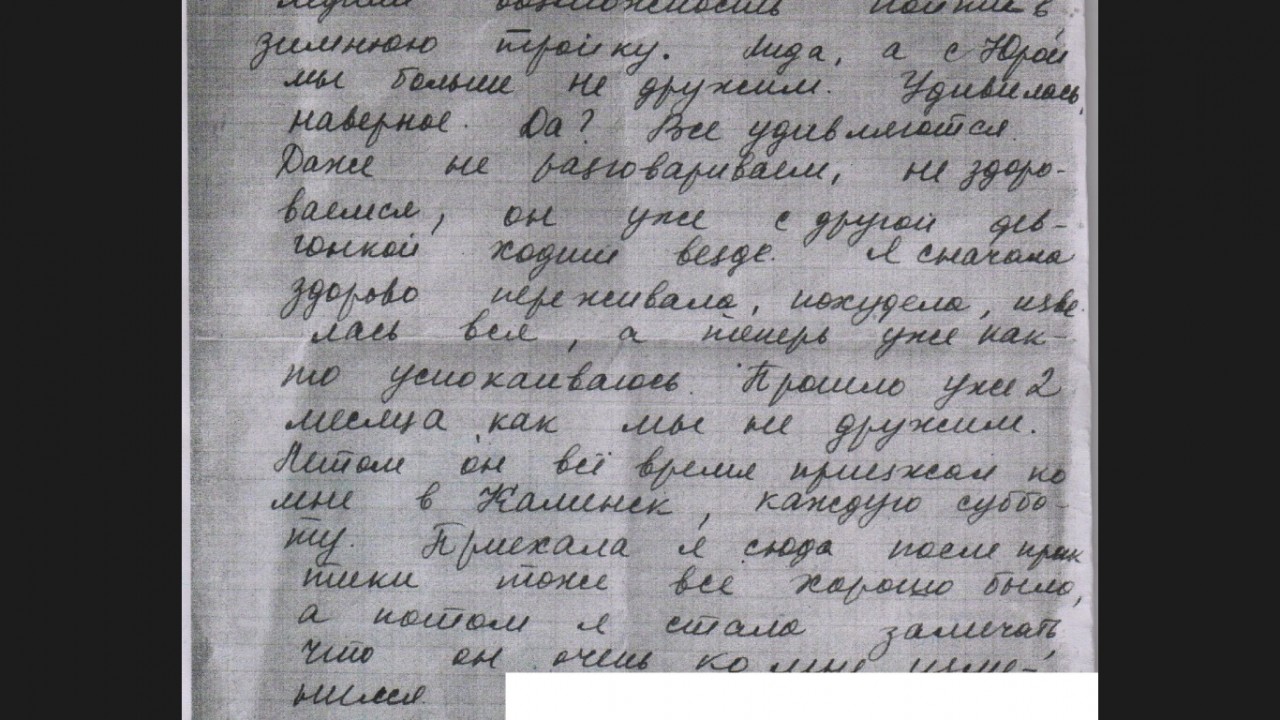 возможность пойти в
зимнюю тройку. Лида, а с Юрой
мы больше не дружим. Удивилась,
наверное. Да? Все удивляются.
Даже не разговариваем, не здоро-
ваемся, он уже с другой дев-
чонкой ходит везде. Я сначала
здорово переживала, похудела, изве
лась вся, а теперь уже как-
то успокаиваюсь. Прошло уже 2
месяца как мы не дружим.
Летом он всё время приезжал ко
мне в Каменск, каждую суббо-
ту. Приехала я сюда после прак
тики тоже всё хорошо было,
а потом я стала замечать,
что он очень ко мне изме-
нился.